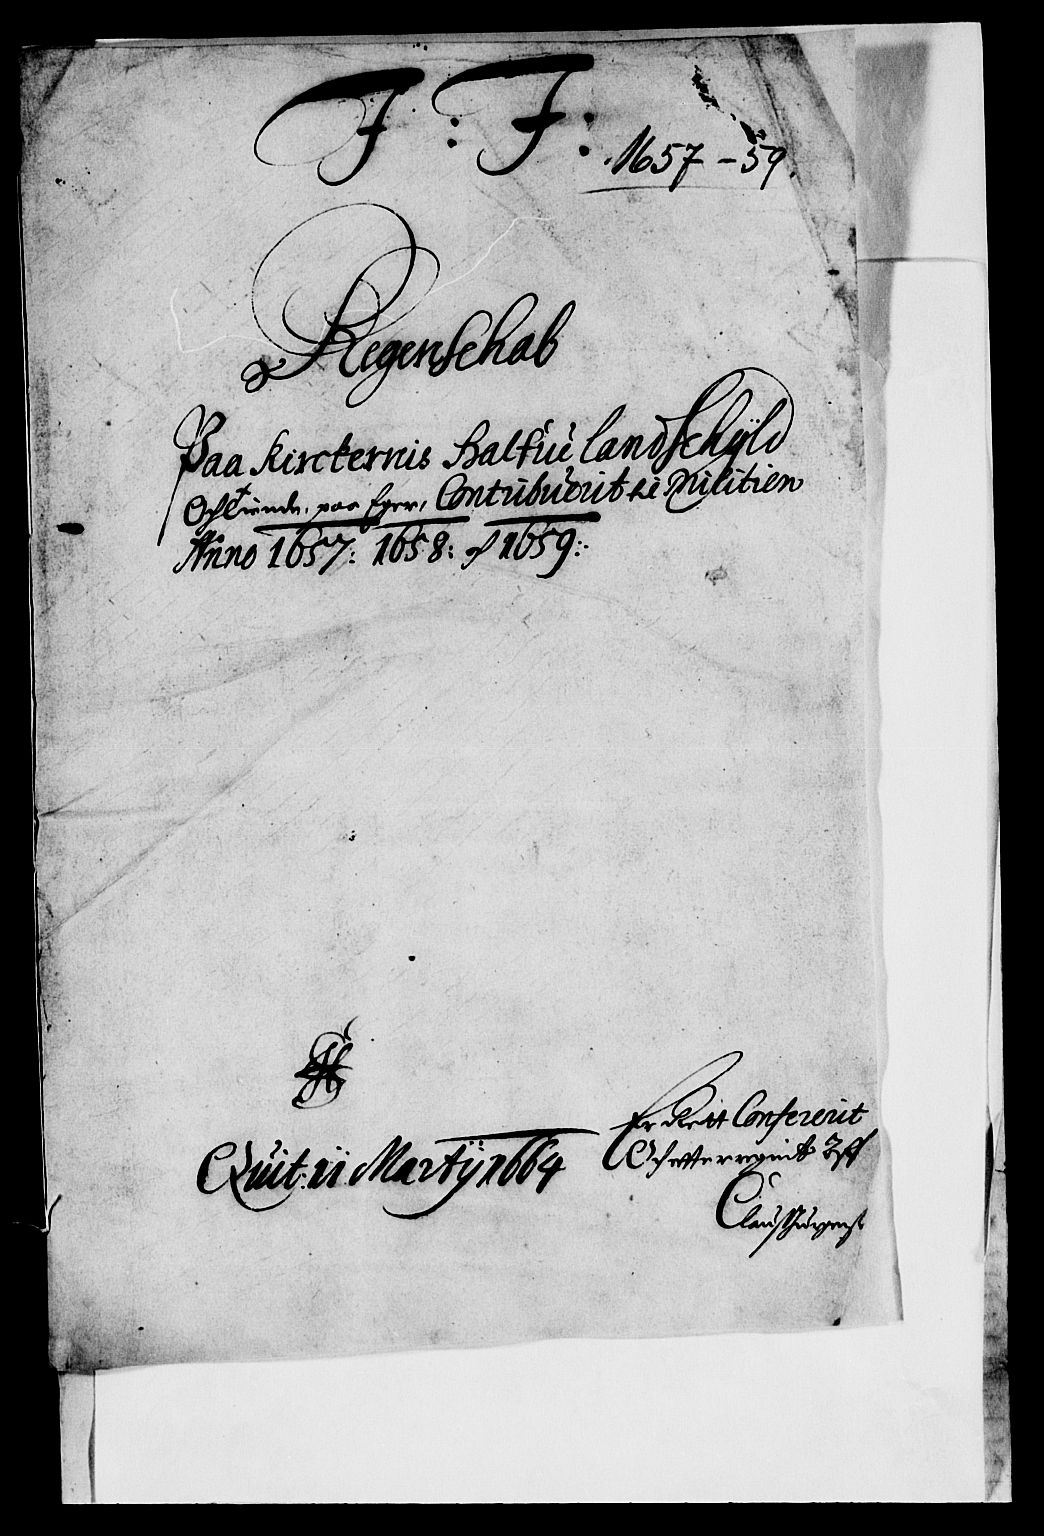 F : F :
1657 - 59.
Regenschab
Paa Kirckernis Halfue landschyld
Och tiende, paa Eger, Contribuerit til Militien
Anno 1657: 1658: of 1659:
Quit: 11 Martÿ 1664
Er Rett Confererit
Claus